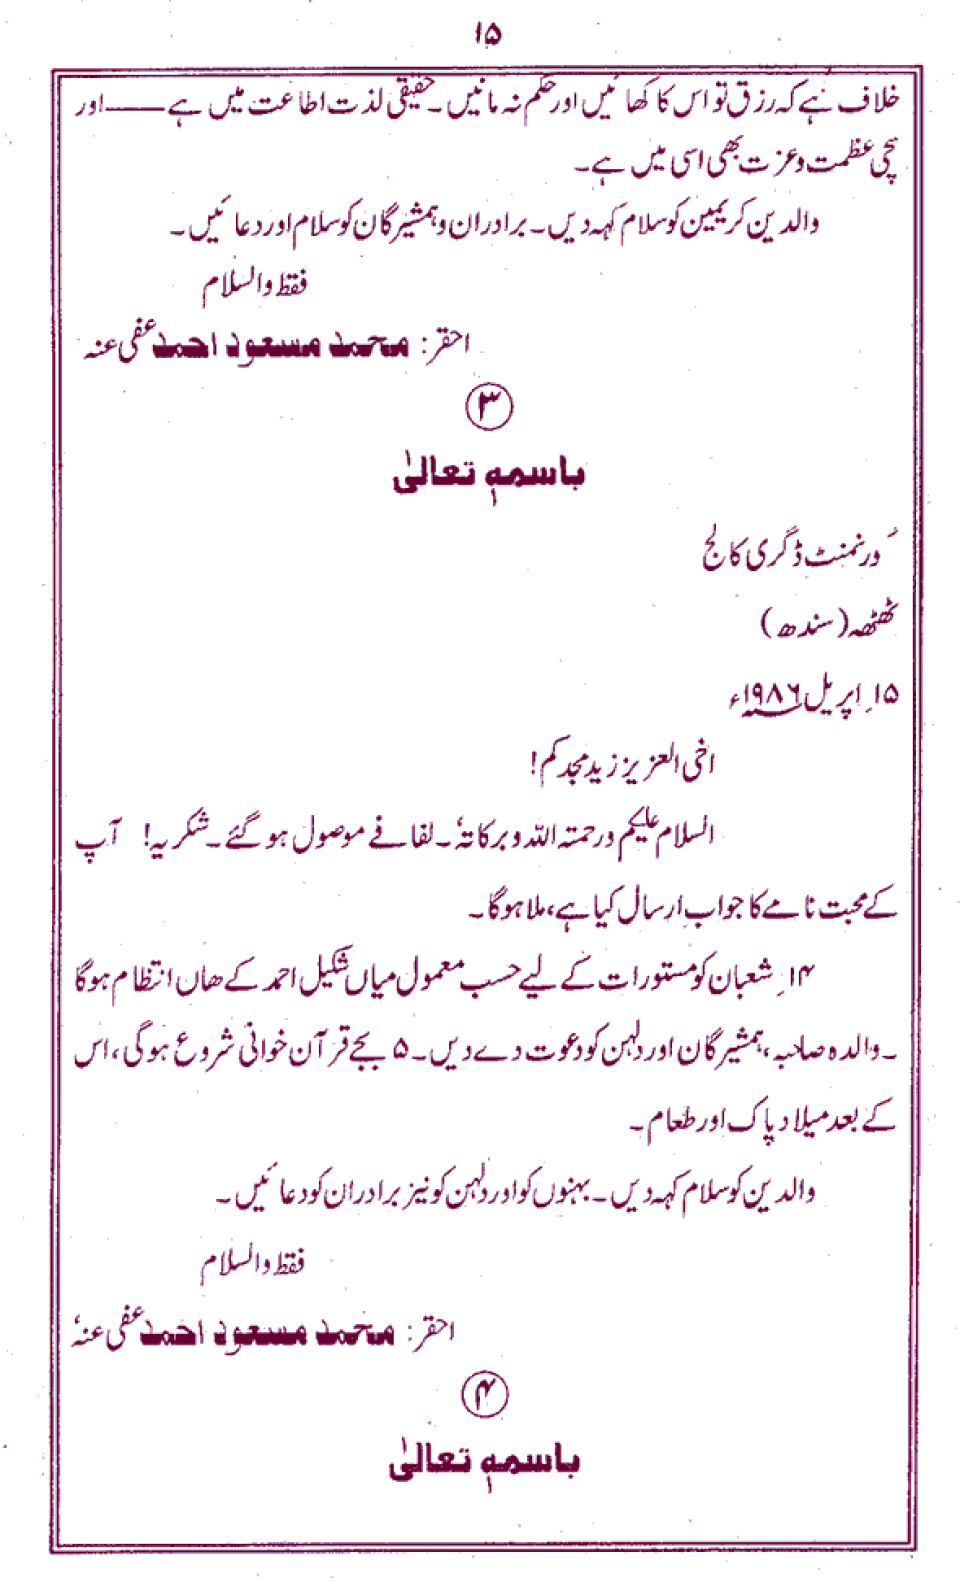 ۱۵
خلاف ہے کہ رزق تو اس کا کھائیں اور حکم نہ مانیں۔ حقیقی لذت اطاعت میں ہے —— اور
سچی عظمت و عزت بھی اسی میں ہے۔
والدین کریمین کو سلام کہہ دیں۔ برادران و ہمشیرگان کو سلام اور دعائیں۔
فقط والسلام
احقر: محمد مسعود احمد عفی عنہ
۳
باسمہٖ تعالیٰ
گورنمنٹ ڈگری کالج
ٹھٹھہ (سندھ)
۱۵؍ اپریل ۱۹۸۶ء
اخی العزیز زید مجدکم!
السلام علیکم ورحمتہ اللہ وبرکاتہٗ۔ لفافے موصول ہو گئے۔ شکریہ! آپ
کے محبت نامے کا جواب ارسال کیا ہے، ملا ہوگا۔
۱۴؍ شعبان کو مستورات کے لیے حسب معمول میاں شکیل احمد کے ھاں انتظام ہوگا
۔ والدہ صاحبہ، ہمشیرگان اور دلہن کو دعوت دے دیں۔ ۵ بجے قرآن خوانی شروع ہوگی، اس
کے بعد میلاد پاک اور طعام۔
والدین کو سلام کہہ دیں۔ بہنوں کو اور دلہن کو نیز برادران کو دعائیں۔
فقط والسلام
احقر: محمد مسعود احمد عفی عنہٗ
۴
باسمہٖ تعالیٰ